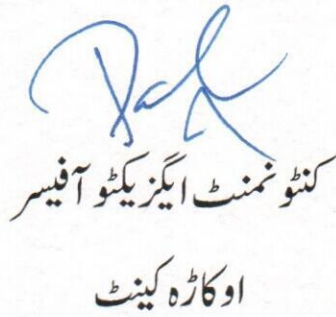 کنٹونمنٹ ایگزیکٹو آفیسر
اوکاڑہ کینٹ